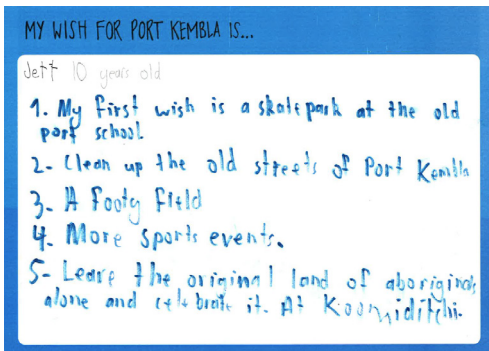 MY WISH FOR PORT KEMBLA IS...
Jett 10 years old
1. My first wish is a skate park at the old
port school
2- Clean up the old streets of Port Kembla
3- A Footy Field
4. More sports events.
5- Leave the original land of aboriginals
alone and celebrate it. At Koomiditchi.